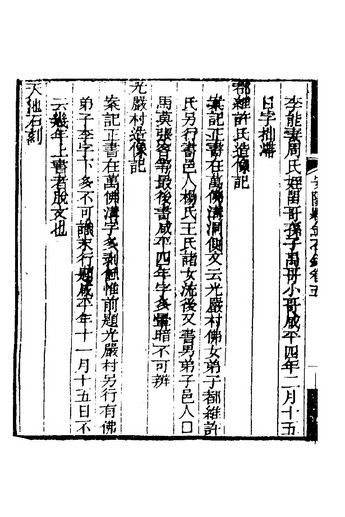 李能妻周氏姪留哥孫子馮哥小哥咸平四年二月十五
日字拙濇
都維許氏造像記
案記正書在萬佛溝洞側文云光嚴村佛女弟子都維許
氏另行書邑人楊氏王氏諸女流後又書男弟子邑人口
馬真張 等最後書咸平四年字多 暗不可辨
光嚴村造像記
案記正書在萬佛溝字多剥蝕惟前題光嚴村另行有佛
弟子李字下多不可識末行題咸平年十一月十五日不
云幾年上書者脫文也
天池石刻
安陽縣金石錄卷五